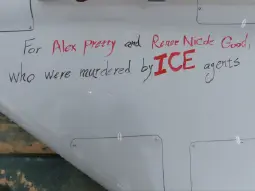 For Alex Pretty and Renee Nicole Good,
who were murdered by ICE agents